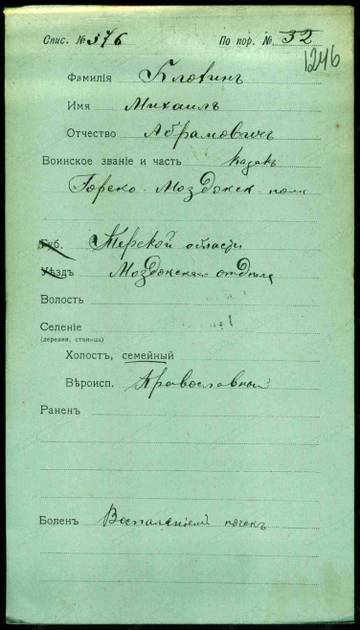 Спис. № 376 По пор. № 32
1246
Фамилія
Имя Михаилъ
Отчество Абрамовичъ
Воинское званіе и часть казакъ
Горско-Моздокск. полк
Губ. Терской области
Уѣздъ Моздокскаго отдѣла
Волость
Селеніе
(деревня, станица)
Холостъ, семейный
Вѣроисп. Православный
Раненъ
Боленъ Воспаленіемъ почекъ